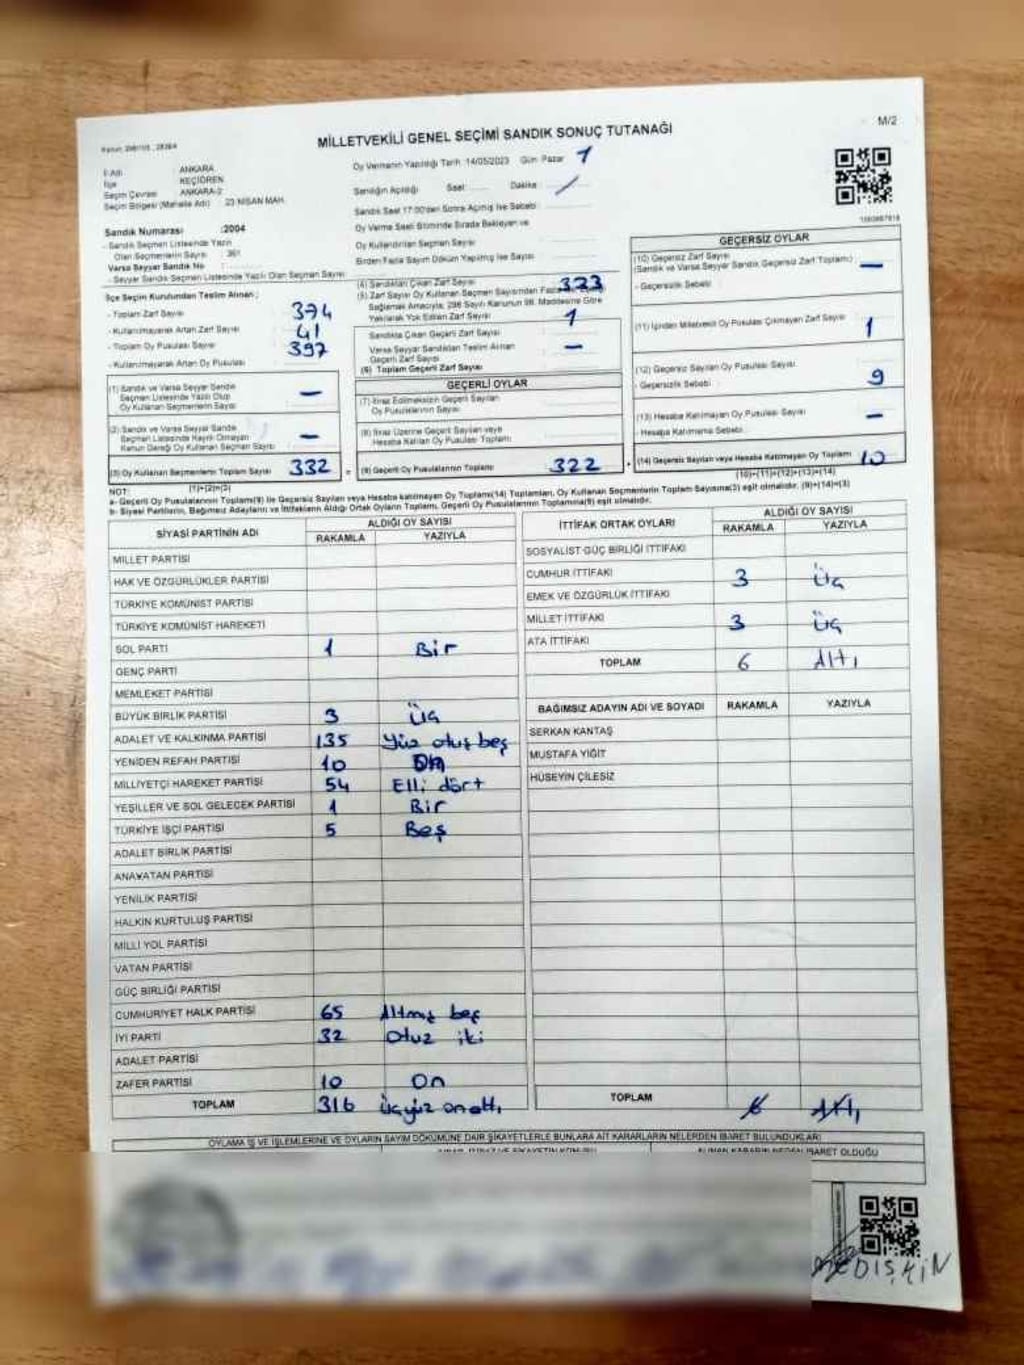 M/2
MİLLETVEKİLİ GENEL SEÇİMİ SANDIK SONUÇ TUTANAĞI
İl Adı : ANKARA
İlçe : KEÇİÖREN
Seçim Çevresi : ANKARA-2
Seçim Bölgesi (Mahalle Adı) : 23 NİSAN MAH.
Oy Vermenin Yapıldığı Tarih :14/05/2023 Gün: Pazar 1
Sandığın Açıldığı Saat: Dakika: /
Sandık Saat 17:00'den Sonra Açılmış İse Sebebi
Oy Verme Saati Bitiminde Sırada Bekleyen ve
Oy Kullandırılan Seçmen Sayısı
Birden Fazla Sayım Döküm Yapılmış İse Sayısı
Sandık Numarası :2004
- Sandık Seçmen Listesinde Yazılı
Olan Seçmenlerin Sayısı : 361
Varsa Seyyar Sandık No
- Seyyar Sandık Seçmen Listesinde Yazılı Olan Seçmen Sayısı
İlçe Seçim Kurulundan Teslim Alınan ;
- Toplam Zarf Sayısı 374
- Kullanılmayarak Artan Zarf Sayısı 41
- Toplam Oy Pusulası Sayısı 397
- Kullanılmayarak Artan Oy Pusulası
(1) Sandık ve Varsa Seyyar Sandık
Seçmen Listesinde Yazılı Olup
Oy Kullanan Seçmenlerin Sayısı —
(2) Sandık ve Varsa Seyyar Sandık
Seçmen Listesinde Kayıtlı Olmayan
Kanun Gereği Oy Kullanan Seçmen Sayısı —
(3) Oy Kullanan Seçmenlerin Toplam Sayısı 332
(1)+(2)=(3)
(4) Sandıktan Çıkan Zarf Sayısı 323
(5) Zarf Sayısı Oy Kullanan Seçmen Sayısından
Sağlamak Amacıyla, 298 Sayılı Kanunun 98. Maddesine Göre
Yakılarak Yok Edilen Zarf Sayısı 1
Sandıkta Çıkan Geçerli Zarf Sayısı
Varsa Seyyar Sandıktan Teslim Alınan
Geçerli Zarf Sayısı —
(6) Toplam Geçerli Zarf Sayısı
GEÇERLİ OYLAR
(7) İtiraz Edilmeksizin Geçerli Sayılan
Oy Pusulalarının Sayısı
(8) İtiraz Üzerine Geçerli Sayılan veya
Hesaba Katılan Oy Pusulası Toplamı
(9) Geçerli Oy Pusulalarının Toplamı 322
GEÇERSİZ OYLAR
(10) Geçersiz Zarf Sayısı
(Sandık ve Varsa Seyyar Sandık Geçersiz Zarf Toplamı) —
- Geçersizlik Sebebi
(11) İçinden Milletvekili Oy Pusulası Çıkmayan Zarf Sayısı 1
(12) Geçersiz Sayılan Oy Pusulası Sayısı 9
- Geçersizlik Sebebi
(13) Hesaba Katılmayan Oy Pusulası Sayısı —
- Hesaba Katılmama Sebebi
(14) Geçersiz Sayılan veya Hesaba Katılmayan Oy Toplamı 10
(10)+(11)+(12)+(13)=(14)
NOT:
a- Geçerli Oy Pusulalarının Toplamı(9) ile Geçersiz Sayılan veya Hesaba katılmayan Oy Toplamı(14) Toplamları, Oy Kullanan Seçmenlerin Toplam Sayısına(3) eşit olmalıdır. (9)+(14)=(3)
b- Siyasi Partilerin, Bağımsız Adayların ve İttifakların Aldığı Ortak Oyların Toplamı, Geçerli Oy Pusulalarının Toplamına(9) eşit olmalıdır.
SİYASİ PARTİNİN ADI ALDIĞI OY SAYISI
RAKAMLA YAZIYLA
MİLLET PARTİSİ
HAK VE ÖZGÜRLÜKLER PARTİSİ
TÜRKİYE KOMÜNİST PARTİSİ
TÜRKİYE KOMÜNİST HAREKETİ
SOL PARTİ 1 Bir
GENÇ PARTİ
MEMLEKET PARTİSİ
BÜYÜK BİRLİK PARTİSİ 3 Üç
ADALET VE KALKINMA PARTİSİ 135 Yüz otuz beş
YENİDEN REFAH PARTİSİ 10 On
MİLLİYETÇİ HAREKET PARTİSİ 54 Elli dört
YEŞİLLER VE SOL GELECEK PARTİSİ 1 Bir
TÜRKİYE İŞÇİ PARTİSİ 5 Beş
ADALET BİRLİK PARTİSİ
ANAVATAN PARTİSİ
YENİLİK PARTİSİ
HALKIN KURTULUŞ PARTİSİ
MİLLİ YOL PARTİSİ
VATAN PARTİSİ
GÜÇ BİRLİĞİ PARTİSİ
CUMHURİYET HALK PARTİSİ 65 Altmış beş
İYİ PARTİ 32 Otuz iki
ADALET PARTİSİ
ZAFER PARTİSİ 10 On
TOPLAM 316 üçyüz onaltı
İTTİFAK ORTAK OYLARI ALDIĞI OY SAYISI
RAKAMLA YAZIYLA
SOSYALİST GÜÇ BİRLİĞİ İTTİFAKI
CUMHUR İTTİFAKI 3 Üç
EMEK VE ÖZGÜRLÜK İTTİFAKI
MİLLET İTTİFAKI 3 Üç
ATA İTTİFAKI
TOPLAM 6 Altı
BAĞIMSIZ ADAYIN ADI VE SOYADI RAKAMLA YAZIYLA
SERKAN KANTAŞ
MUSTAFA YİĞİT
HÜSEYİN ÇİLESİZ
TOPLAM 6 Altı
OYLAMA İŞ VE İŞLEMLERİNE VE OYLARIN SAYIM DÖKÜMÜNE DAİR ŞİKAYETLERLE BUNLARA AİT KARARLARIN NELERDEN İBARET BULUNDUKLARI